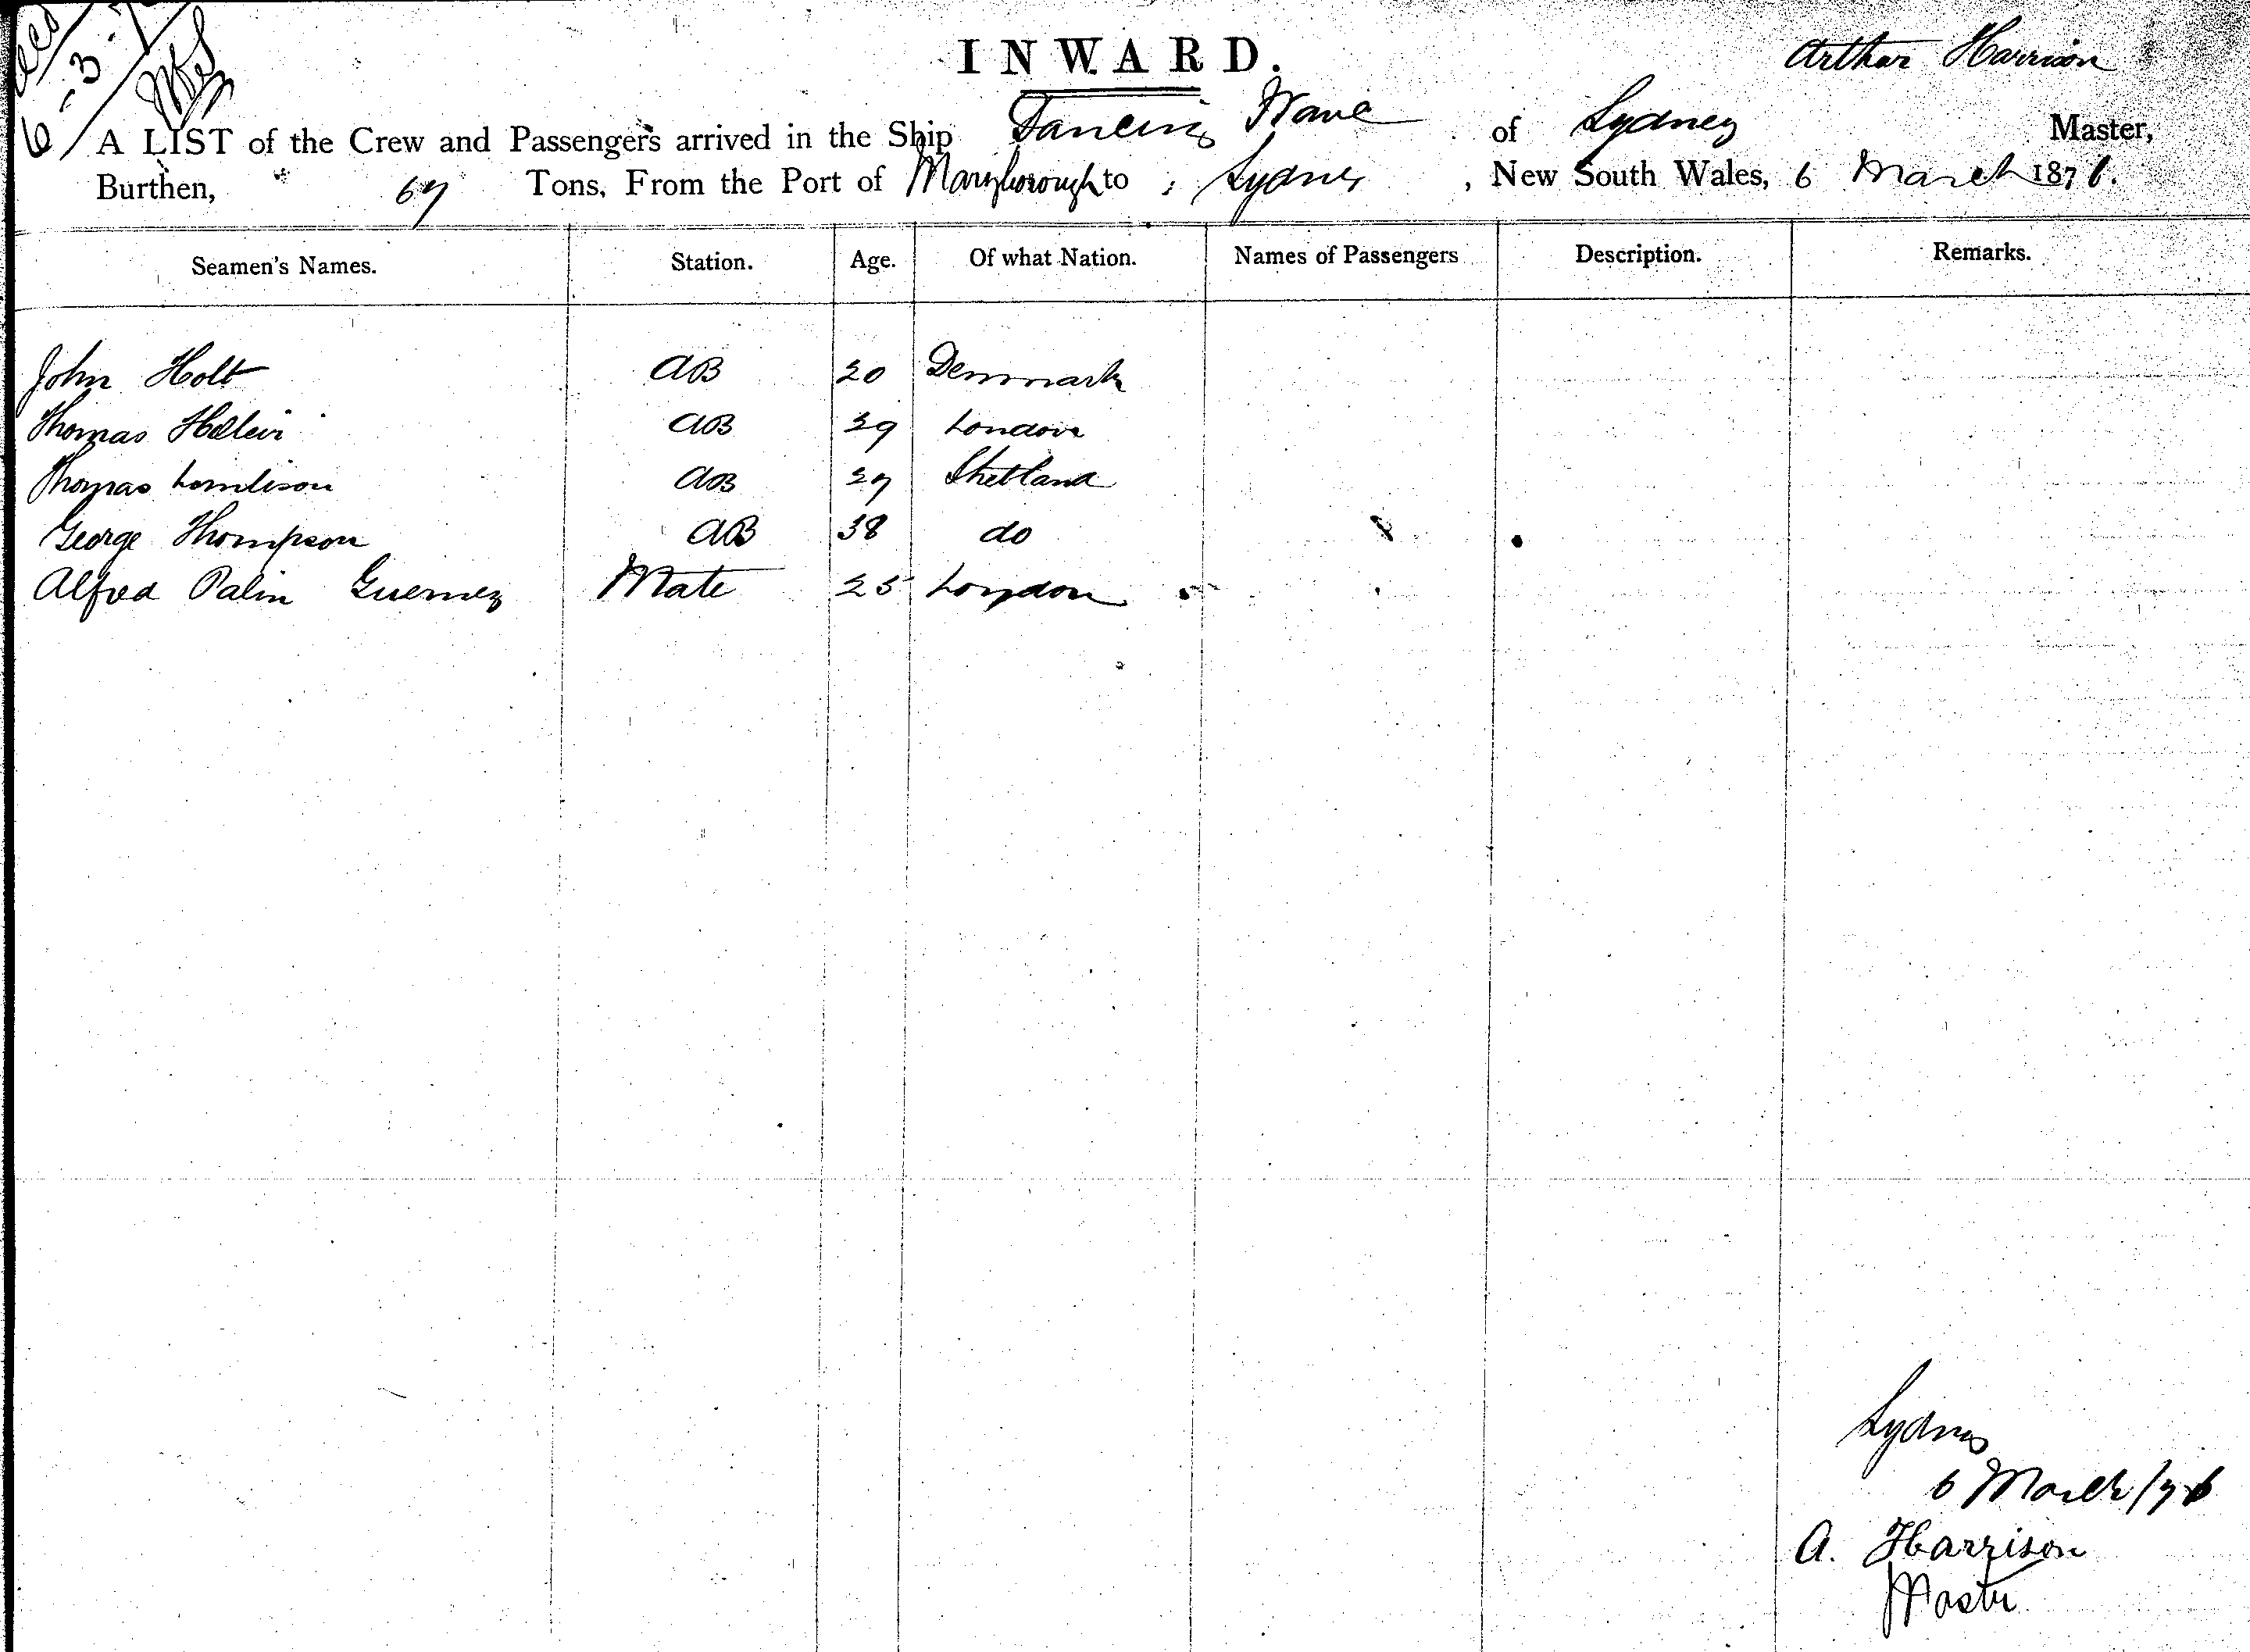 6-3-7
INWARD.
Arthur Harrison
A LIST of the Crew and Passengers arrived in the Ship Dancing Wave of Sydney Master,
Burthen, 67 Tons, From the Port of Maryborough to Sydney, New South Wales, 6 March 1876.
Seamen's Names. Station. Age. Of what Nation. Names of Passengers Description. Remarks.
John Holt AB 20 Denmark
Thomas AB 39 London
Thomas AB 27 Shetland
George Thompson AB 38 do
Alfred Palin Guernez Mate 25 London
Sydney
6 March/76
A. Harrison
Master